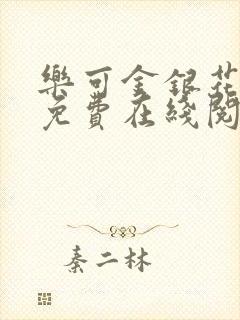 樂可金銀花
免費在綫閱
秦二林